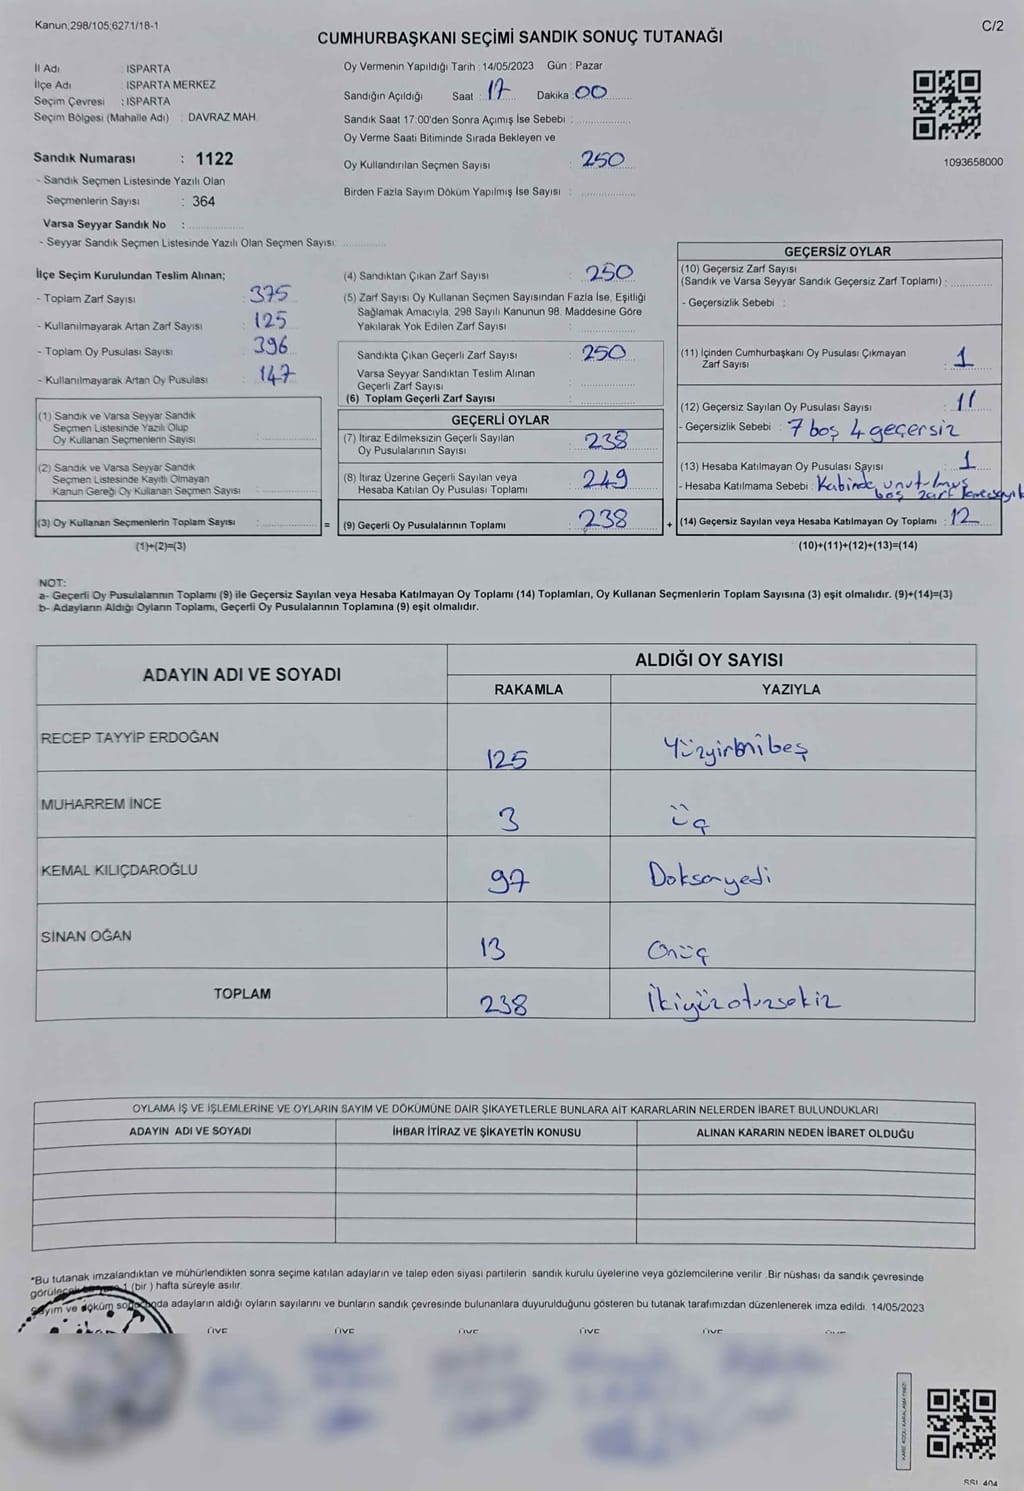 Kanun;298/105;6271/18-1
C/2
CUMHURBAŞKANI SEÇİMİ SANDIK SONUÇ TUTANAĞI
İl Adı : ISPARTA
İlçe Adı : ISPARTA MERKEZ
Seçim Çevresi : ISPARTA
Seçim Bölgesi (Mahalle Adı) : DAVRAZ MAH.
Sandık Numarası : 1122
- Sandık Seçmen Listesinde Yazılı Olan
Seçmenlerin Sayısı : 364
Varsa Seyyar Sandık No :
- Seyyar Sandık Seçmen Listesinde Yazılı Olan Seçmen Sayısı:
Oy Vermenin Yapıldığı Tarih : 14/05/2023 Gün : Pazar
Sandığın Açıldığı Saat : 17 Dakika : 00
Sandık Saat 17:00'den Sonra Açımış İse Sebebi :
Oy Verme Saati Bitiminde Sırada Bekleyen ve
Oy Kullandırılan Seçmen Sayısı : 250
Birden Fazla Sayım Döküm Yapılmış İse Sayısı :
1093658000
İlçe Seçim Kurulundan Teslim Alınan;
- Toplam Zarf Sayısı : 375
- Kullanılmayarak Artan Zarf Sayısı : 125
- Toplam Oy Pusulası Sayısı : 396
- Kullanılmayarak Artan Oy Pusulası : 147
(1) Sandık ve Varsa Seyyar Sandık
Seçmen Listesinde Yazılı Olup
Oy Kullanan Seçmenlerin Sayısı :
(2) Sandık ve Varsa Seyyar Sandık
Seçmen Listesinde Kayıtlı Olmayan
Kanun Gereği Oy Kullanan Seçmen Sayısı :
(3) Oy Kullanan Seçmenlerin Toplam Sayısı : =
(1)+(2)=(3)
(4) Sandıktan Çıkan Zarf Sayısı : 250
(5) Zarf Sayısı Oy Kullanan Seçmen Sayısından Fazla İse, Eşitliği
Sağlamak Amacıyla, 298 Sayılı Kanunun 98. Maddesine Göre
Yakılarak Yok Edilen Zarf Sayısı :
Sandıkta Çıkan Geçerli Zarf Sayısı : 250
Varsa Seyyar Sandıktan Teslim Alınan
Geçerli Zarf Sayısı :
(6) Toplam Geçerli Zarf Sayısı :
GEÇERLİ OYLAR
(7) İtiraz Edilmeksizin Geçerli Sayılan
Oy Pusulalarının Sayısı : 238
(8) İtiraz Üzerine Geçerli Sayılan veya
Hesaba Katılan Oy Pusulası Toplamı : 249
(9) Geçerli Oy Pusulalarının Toplamı : 238 +
GEÇERSİZ OYLAR
(10) Geçersiz Zarf Sayısı
(Sandık ve Varsa Seyyar Sandık Geçersiz Zarf Toplamı) :
- Geçersizlik Sebebi :
(11) İçinden Cumhurbaşkanı Oy Pusulası Çıkmayan
Zarf Sayısı : 1
(12) Geçersiz Sayılan Oy Pusulası Sayısı : 11
- Geçersizlik Sebebi : 7 boş 4 geçersiz
(13) Hesaba Katılmayan Oy Pusulası Sayısı : 1
- Hesaba Katılmama Sebebi : Kabinde unutulmuş
boş zarf
(14) Geçersiz Sayılan veya Hesaba Katılmayan Oy Toplamı : 12
(10)+(11)+(12)+(13)=(14)
NOT:
a- Geçerli Oy Pusulalarının Toplamı (9) ile Geçersiz Sayılan veya Hesaba Katılmayan Oy Toplamı (14) Toplamları, Oy Kullanan Seçmenlerin Toplam Sayısına (3) eşit olmalıdır. (9)+(14)=(3)
b- Adayların Aldığı Oyların Toplamı, Geçerli Oy Pusulalarının Toplamına (9) eşit olmalıdır.
ADAYIN ADI VE SOYADI
ALDIĞI OY SAYISI
RAKAMLA YAZIYLA
RECEP TAYYİP ERDOĞAN 125 Yüzyirmibeş
MUHARREM İNCE 3 üç
KEMAL KILIÇDAROĞLU 97 Doksanyedi
SİNAN OĞAN 13 Onüç
TOPLAM 238 İkiyüzotuzsekiz
OYLAMA İŞ VE İŞLEMLERİNE VE OYLARIN SAYIM VE DÖKÜMÜNE DAİR ŞİKAYETLERLE BUNLARA AİT KARARLARIN NELERDEN İBARET BULUNDUKLARI
ADAYIN ADI VE SOYADI İHBAR İTİRAZ VE ŞİKAYETİN KONUSU ALINAN KARARIN NEDEN İBARET OLDUĞU
*Bu tutanak imzalandıktan ve mühürlendikten sonra seçime katılan adayların ve talep eden siyasi partilerin sandık kurulu üyelerine veya gözlemcilerine verilir .Bir nüshası da sandık çevresinde
1 (bir ) hafta süreyle asılır.
Sayım ve döküm adayların aldığı oyların sayılarını ve bunların sandık çevresinde bulunanlara duyurulduğunu gösteren bu tutanak tarafımızdan düzenlenerek imza edildi. 14/05/2023
ÜYE ÜYE ÜYE ÜYE ÜYE
SSI 404